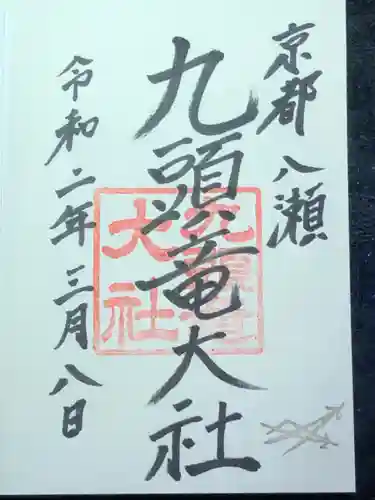 京都 八瀬
九頭竜大社
令和二年 三月 八日
九頭竜
大社